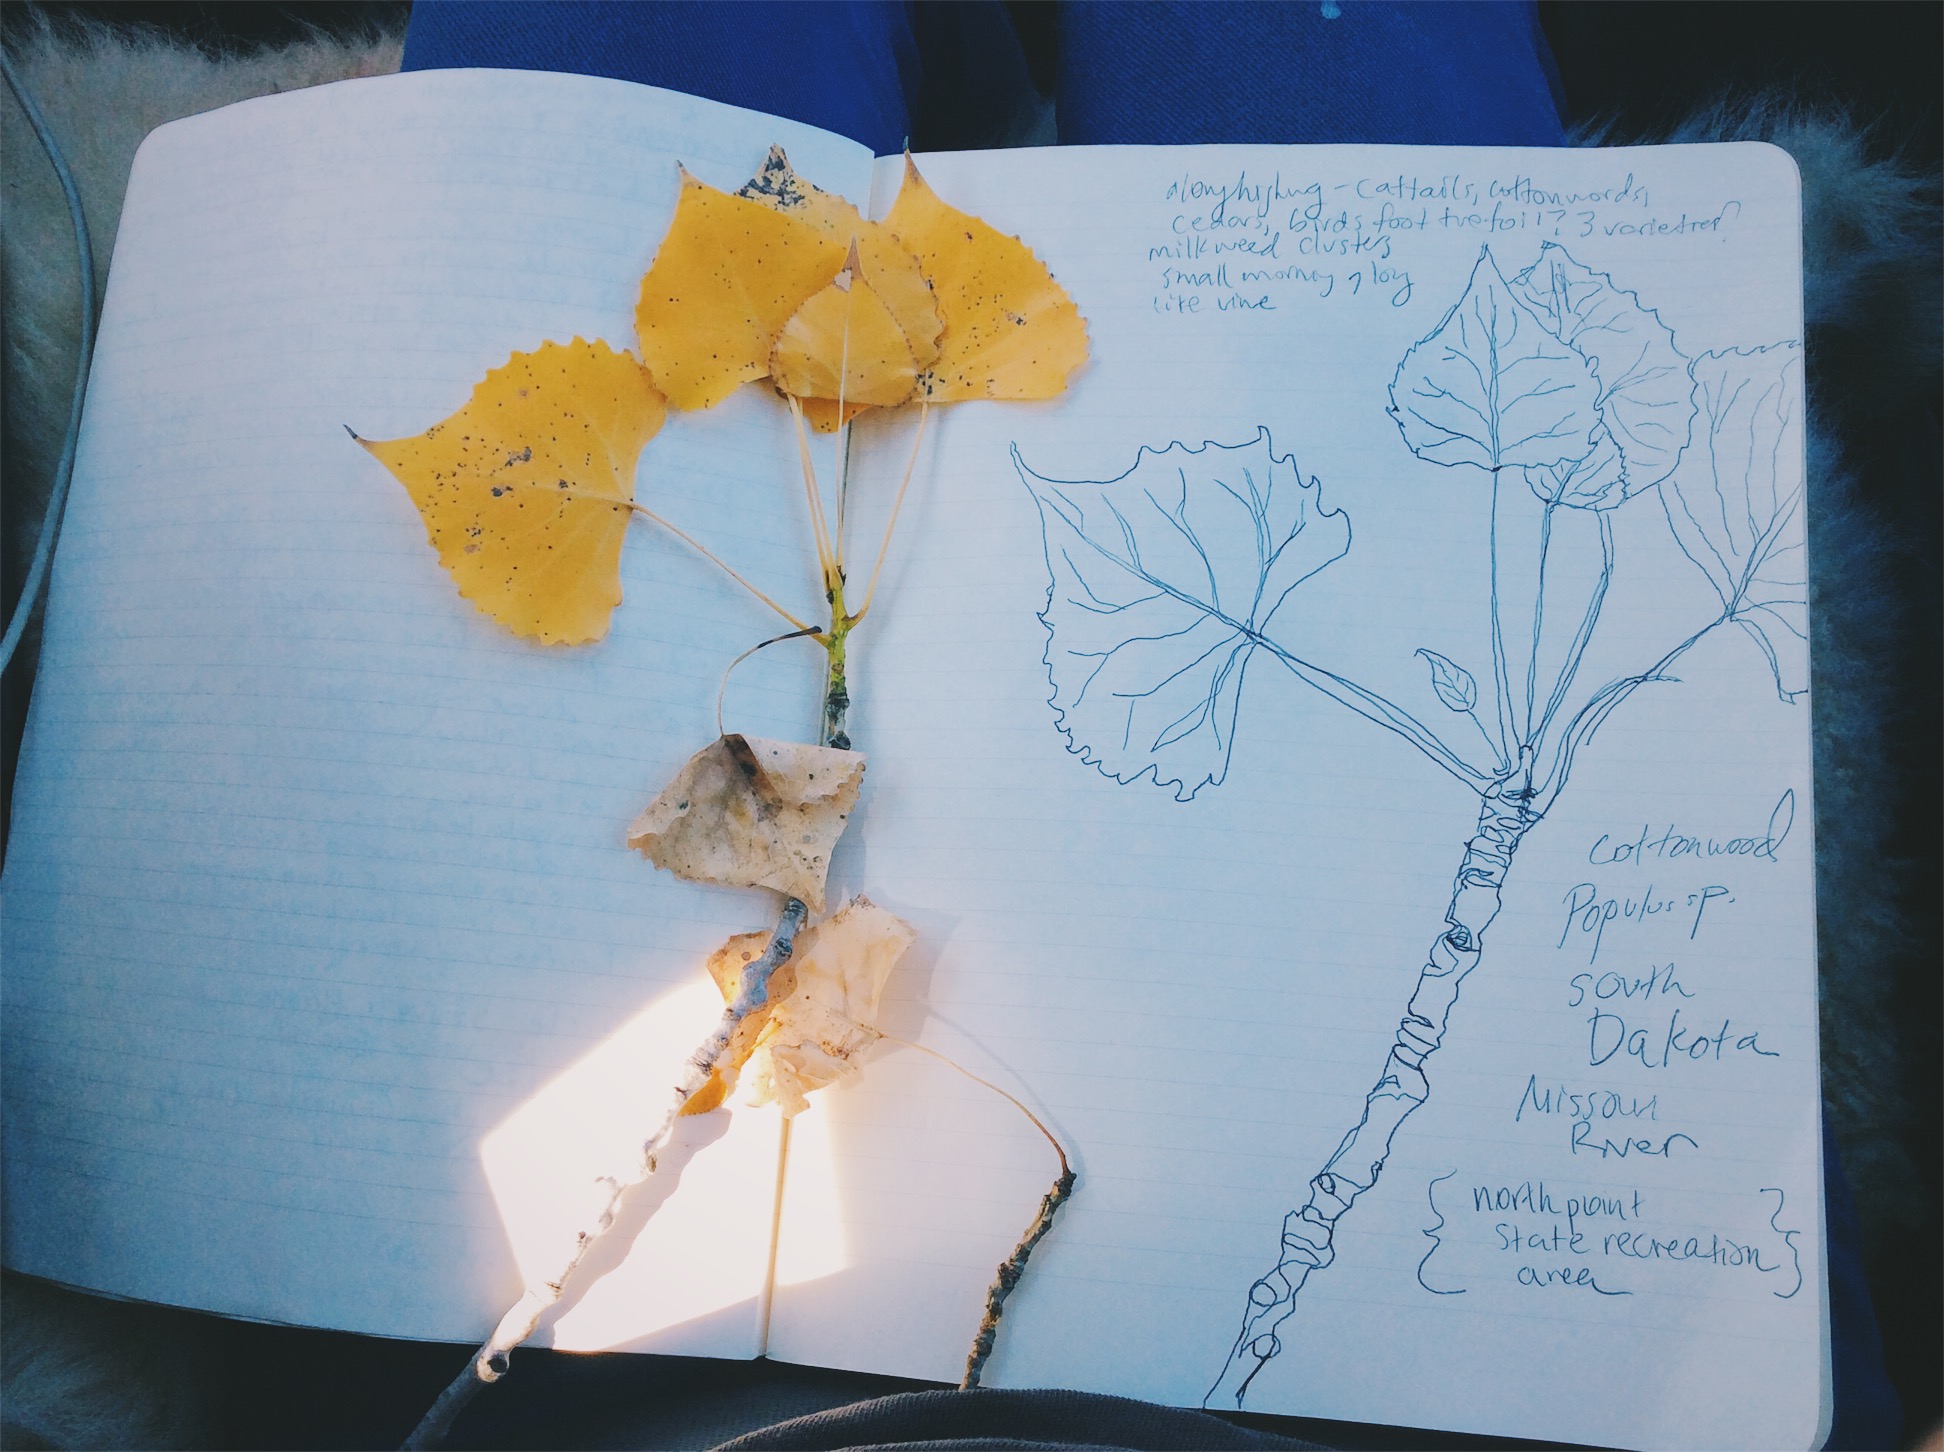 along highwy - cattails, cottonwoods,
cedars, birds foot trefoil? 3 varieties?
milkweed clusters
small morning glory
like vine
Cottonwood
Populus sp.
South
Dakota
Missouri
River
{ north point }
state recreation
area